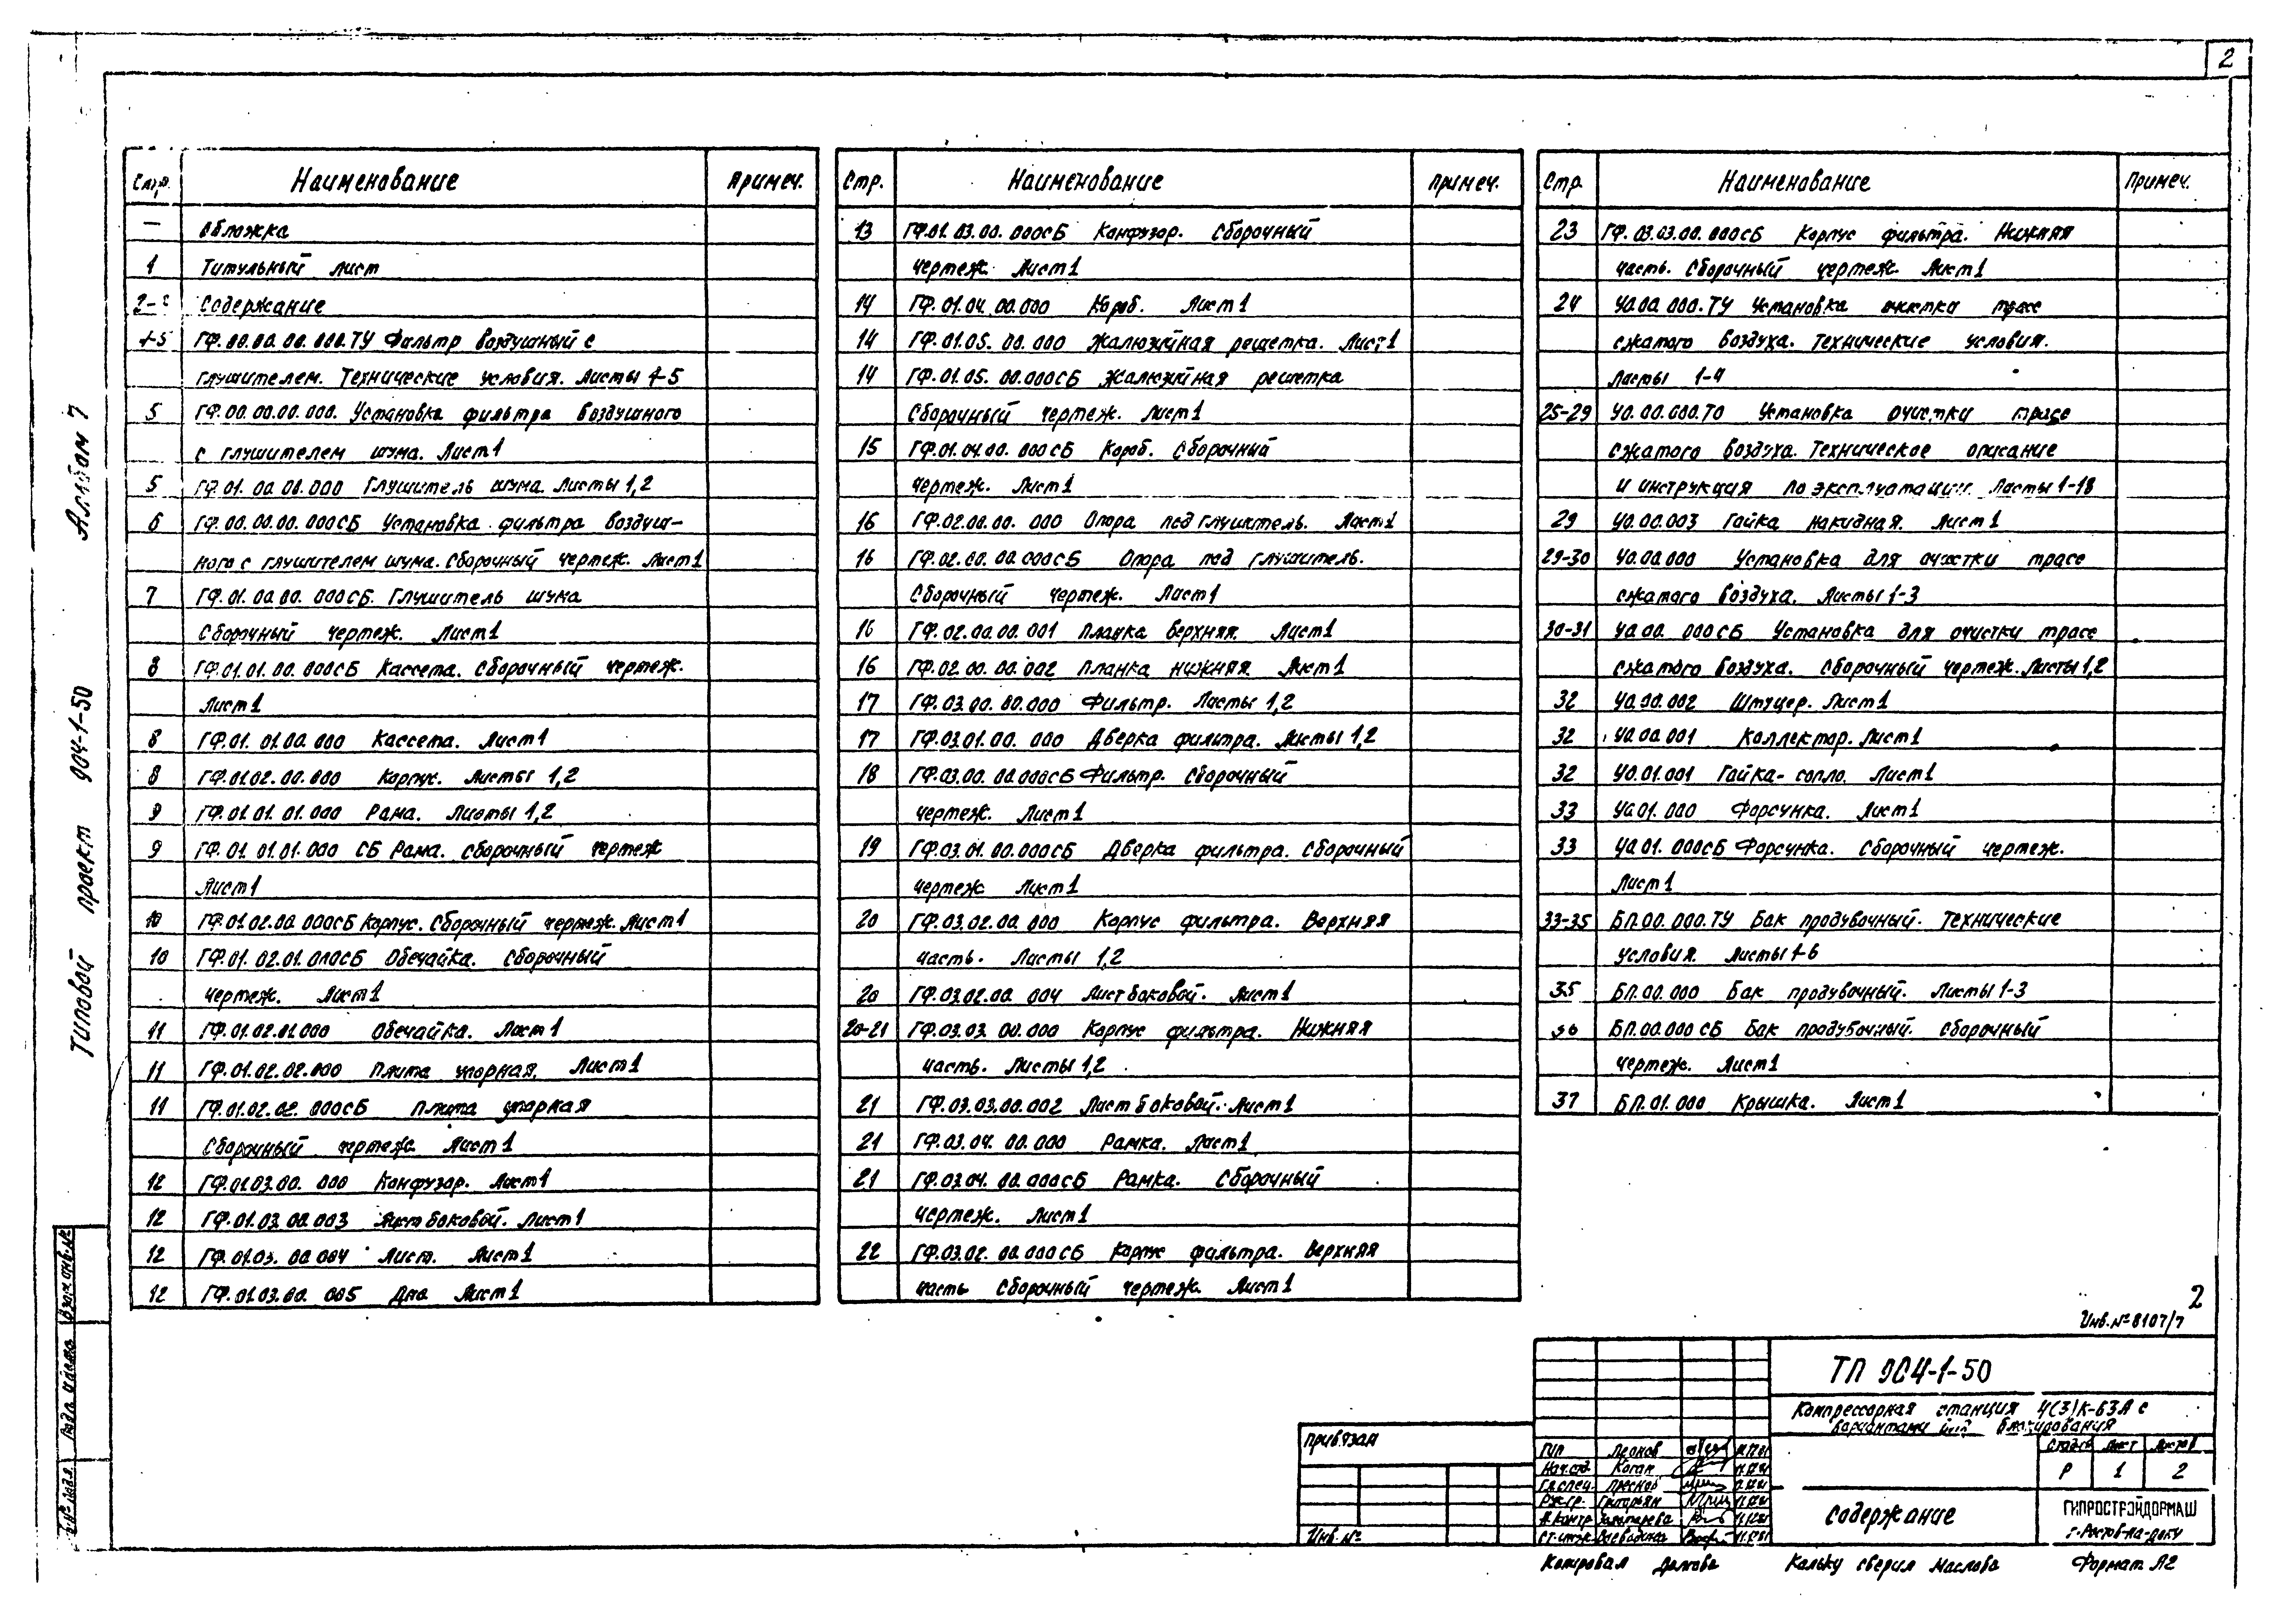 2
Альбом 7
Типовой проект 904-1-50
Стр. Наименование Примеч.
— Обложка
1 Титульный лист
Содержание
4-5 ГФ.00.00.00.000.ТУ Фильтр воздушный с
глушителем. Технические условия. Листы 1-5
5 ГФ.00.00.00.000. Установка фильтра воздушного
с глушителем шума. Лист 1
5 ГФ.01.00.00.000 Глушитель шума. Листы 1,2
6 ГФ.00.00.00.000СБ Установка фильтра воздуш-
ного с глушителем шума. Сборочный чертеж. Лист 1
7 ГФ.01.00.00.000СБ. Глушитель шума
Сборочный чертеж. Лист 1
8 ГФ.01.01.00.000СБ Кассета. Сборочный чертеж.
Лист 1
8 ГФ.01.01.00.000 Кассета. Лист 1
8 ГФ.01.02.00.000 Корпус. Листы 1,2
9 ГФ.01.01.01.000 Рама. Листы 1,2
9 ГФ.01.01.01.000 СБ Рама. Сборочный чертеж
Лист 1
10 ГФ.01.02.00.000СБ Корпус. Сборочный чертеж. Лист 1
10 ГФ.01.02.01.000СБ Обечайка. Сборочный
чертеж. Лист 1
11 ГФ.01.02.01.000 Обечайка. Лист 1
11 ГФ.01.02.02.000 Плита упорная. Лист 1
11 ГФ.01.02.02.000СБ Плита упорная
Сборочный чертеж. Лист 1
12 ГФ.01.03.00.000 Конфузор. Лист 1
12 ГФ.01.03.00.003 Лист боковой. Лист 1
12 ГФ.01.03.00.004 Лист. Лист 1
12 ГФ.01.03.00.005 Дно Лист 1
Стр. Наименование Примеч.
13 ГФ.01.03.00.000СБ Конфузор. Сборочный
чертеж. Лист 1
14 ГФ.01.04.00.000 Короб. Лист 1
14 ГФ.01.05.00.000 Жалюзийная решетка. Лист 1
14 ГФ.01.05.00.000СБ Жалюзийная решетка
Сборочный чертеж. Лист 1
15 ГФ.01.04.00.000СБ Короб. Сборочный
чертеж. Лист 1
16 ГФ.02.00.00.000 Опора под глушитель. Лист 1
16 ГФ.02.00.00.000СБ Опора под глушитель.
Сборочный чертеж. Лист 1
16 ГФ.02.00.00.001 Планка верхняя. Лист 1
16 ГФ.02.00.00.002 Планка нижняя. Лист 1
17 ГФ.03.00.00.000 Фильтр. Листы 1,2
17 ГФ.03.01.00.000 Дверка фильтра. Листы 1,2
18 ГФ.03.00.00.000СБ Фильтр. Сборочный
чертеж. Лист 1
19 ГФ.03.01.00.000СБ Дверка фильтра. Сборочный
чертеж Лист 1
20 ГФ.03.02.00.000 Корпус фильтра. Верхняя
часть. Листы 1,2
20 ГФ.03.02.00.004 Лист боковой. Лист 1
20-21 ГФ.03.03.00.000 Корпус фильтра. Нижняя
часть. Листы 1,2
21 ГФ.03.03.00.002 Лист боковой. Лист 1
21 ГФ.03.04.00.000 Рамка. Лист 1
21 ГФ.03.04.00.000СБ Рамка. Сборочный
чертеж. Лист 1
22 ГФ.03.02.00.000СБ Корпус фильтра. Верхняя
часть Сборочный чертеж. Лист 1
Стр. Наименование Примеч.
23 ГФ.03.03.00.000СБ Корпус фильтра. Нижняя
часть. Сборочный чертеж. Лист 1
24 УО.00.000.ТУ Установка очистки трасс
сжатого воздуха. Технические условия.
Листы 1-4
25-29 УО.00.000.ТО Установка очистки трасс
сжатого воздуха. Техническое описание
и инструкция по эксплуатации. Листы 1-18
29 УО.00.003 Гайка накидная. Лист 1
29-30 УО.00.000 Установка для очистки трасс
сжатого воздуха. Листы 1-3
30-31 УО.00.000СБ Установка для очистки трасс
сжатого воздуха. Сборочный чертеж. Листы 1,2
32 УО.00.002 Штуцер. Лист 1
32 УО.00.001 Коллектор. Лист 1
32 УО.01.001 Гайка-сопло. Лист 1
33 УО.01.000 Форсунка. Лист 1
33 УО.01.000СБ Форсунка. Сборочный чертеж.
Лист 1
33-35 БП.00.000.ТУ Бак продувочный. Технические
условия. Листы 1-6
35 БП.00.000 Бак продувочный. Листы 1-3
36 БП.00.000 СБ Бак продувочный. Сборочный
чертеж. Лист 1
37 БП.01.000 Крышка. Лист 1
2
Инв.№8107/7
ТП 904-1-50
Компрессорная станция 4(3)К-63А с
вариантами блокирования
Стадия Лист Листов
Р 1 2
Содержание
ГИПРОСТРОЙДОРМАШ
г.Ростов-на-Дону
Привязан
Инв.№
ГИП Леонов
Нач.отд. Коган
Гл.спец. Преснов
Рук.гр. Григорьян
Н.контр
Ст.инж.
Копировал Кальку сверил Маслова Формат А2
Взам.инв.№
Подп. и дата
Инв.№ подл.